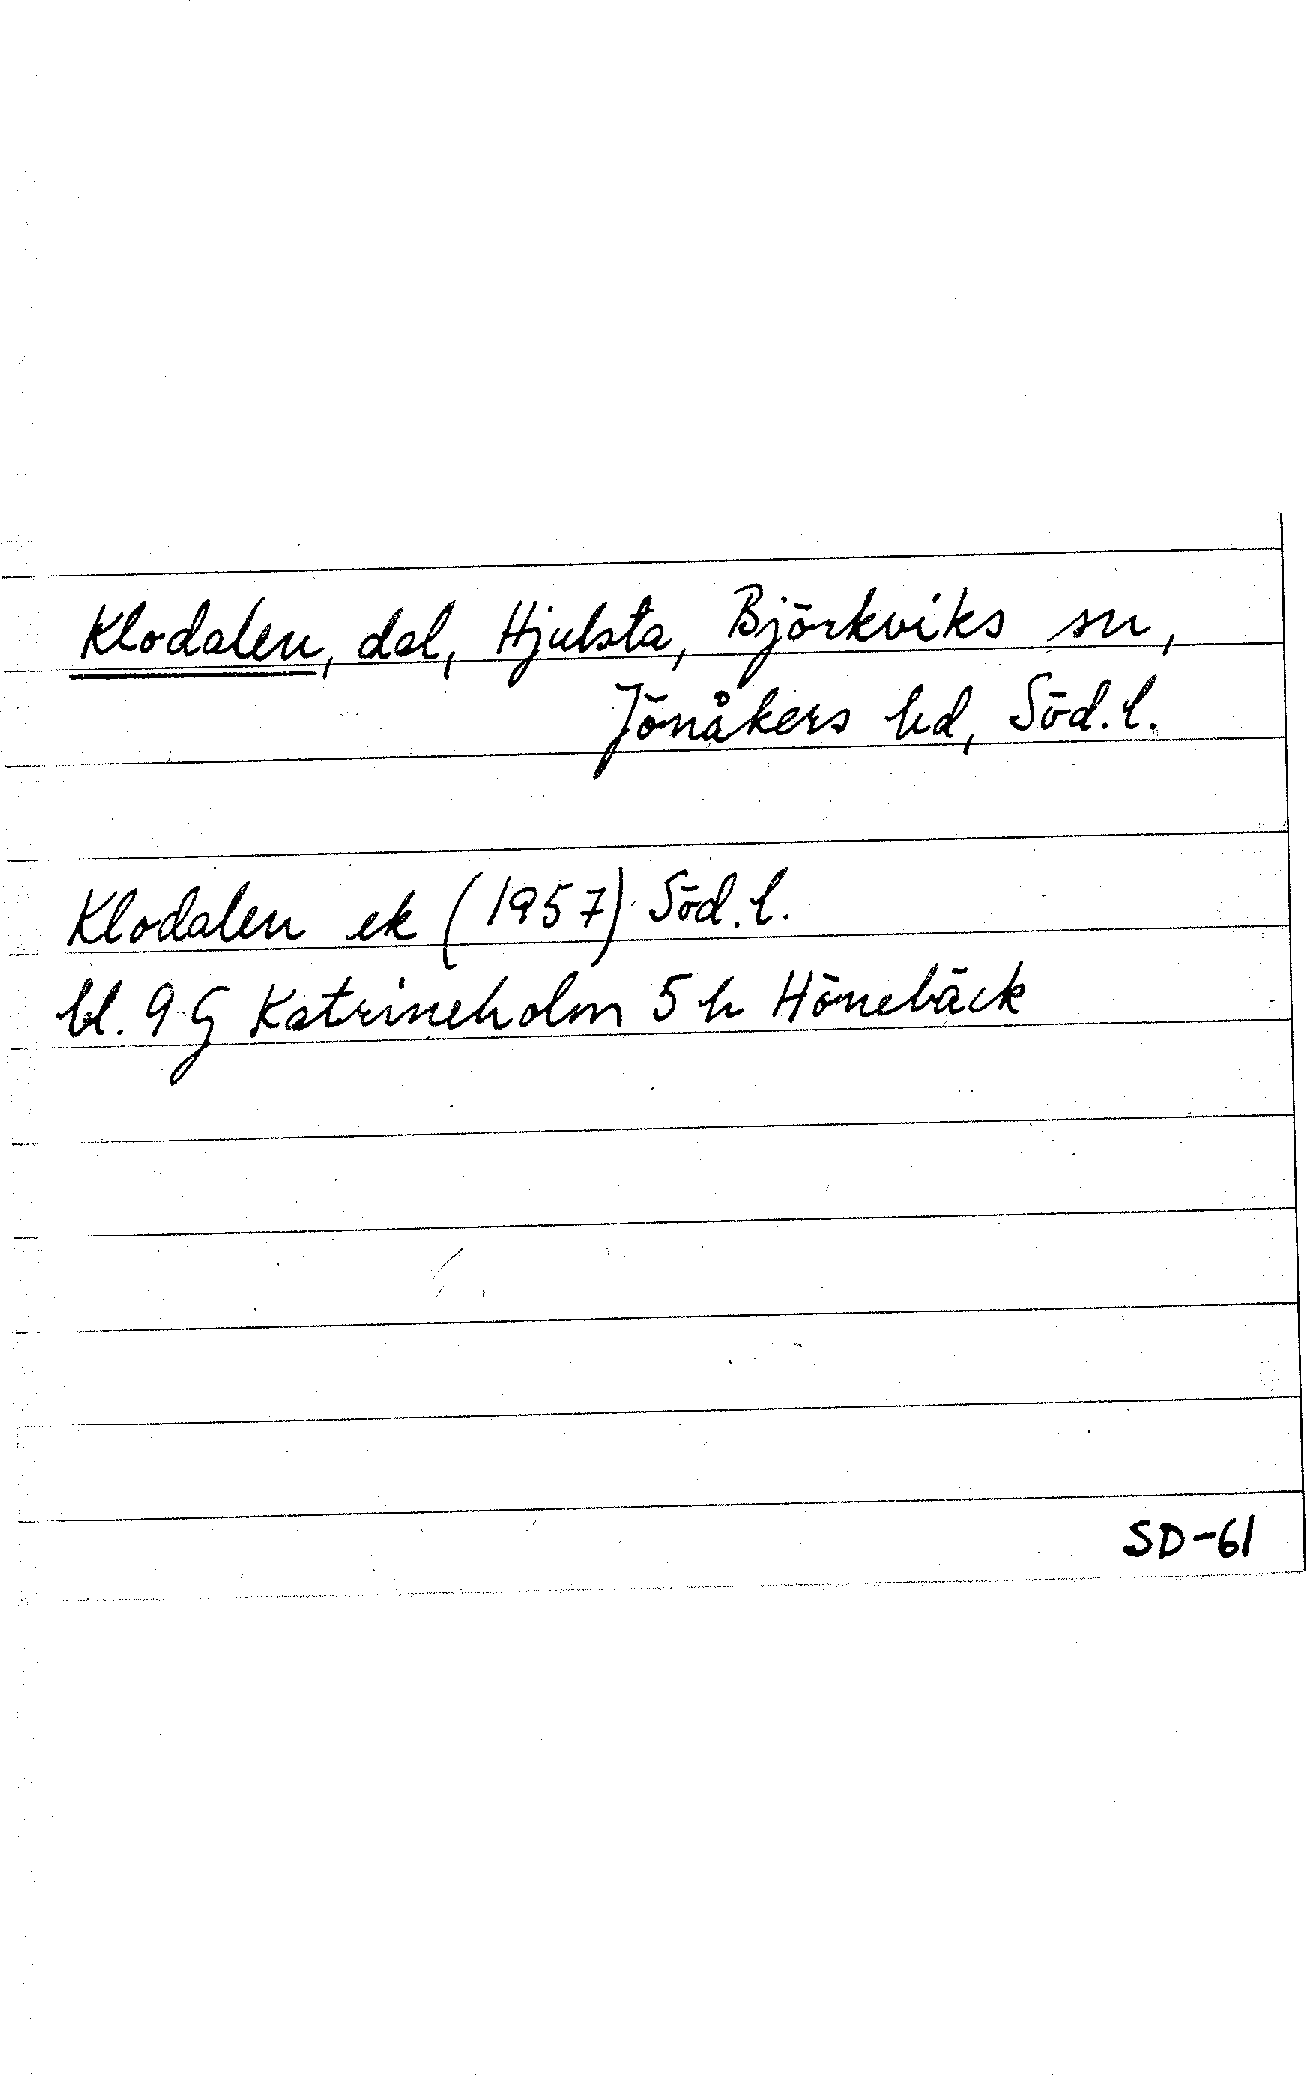 Klodalen, dal, Hjulsta, Björkviks sn,
Jönåkers hd, Söd. l.
Klodalen ek (1957) Söd. l.
bl. 9 G Katrineholm 5 h Hönebäck
SD-61